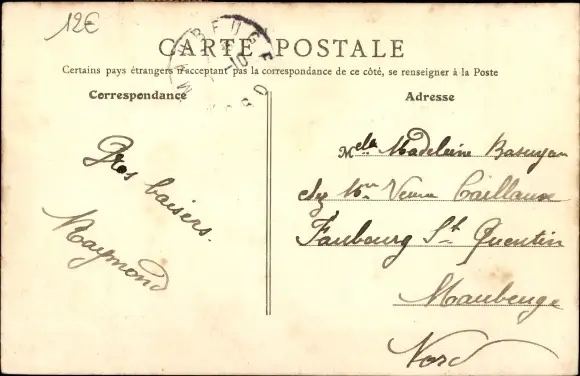 12€
MAUBEUGE
CARTE POSTALE
Certains pays étrangers n'acceptant pas la correspondance de ce côté, se renseigner à la Poste
Correspondance
Gros baisers.
Raymond
Adresse
Melle Madeleine
chez Mme Veuve Caillaux
Faubourg St Quentin
Maubeuge
Nord